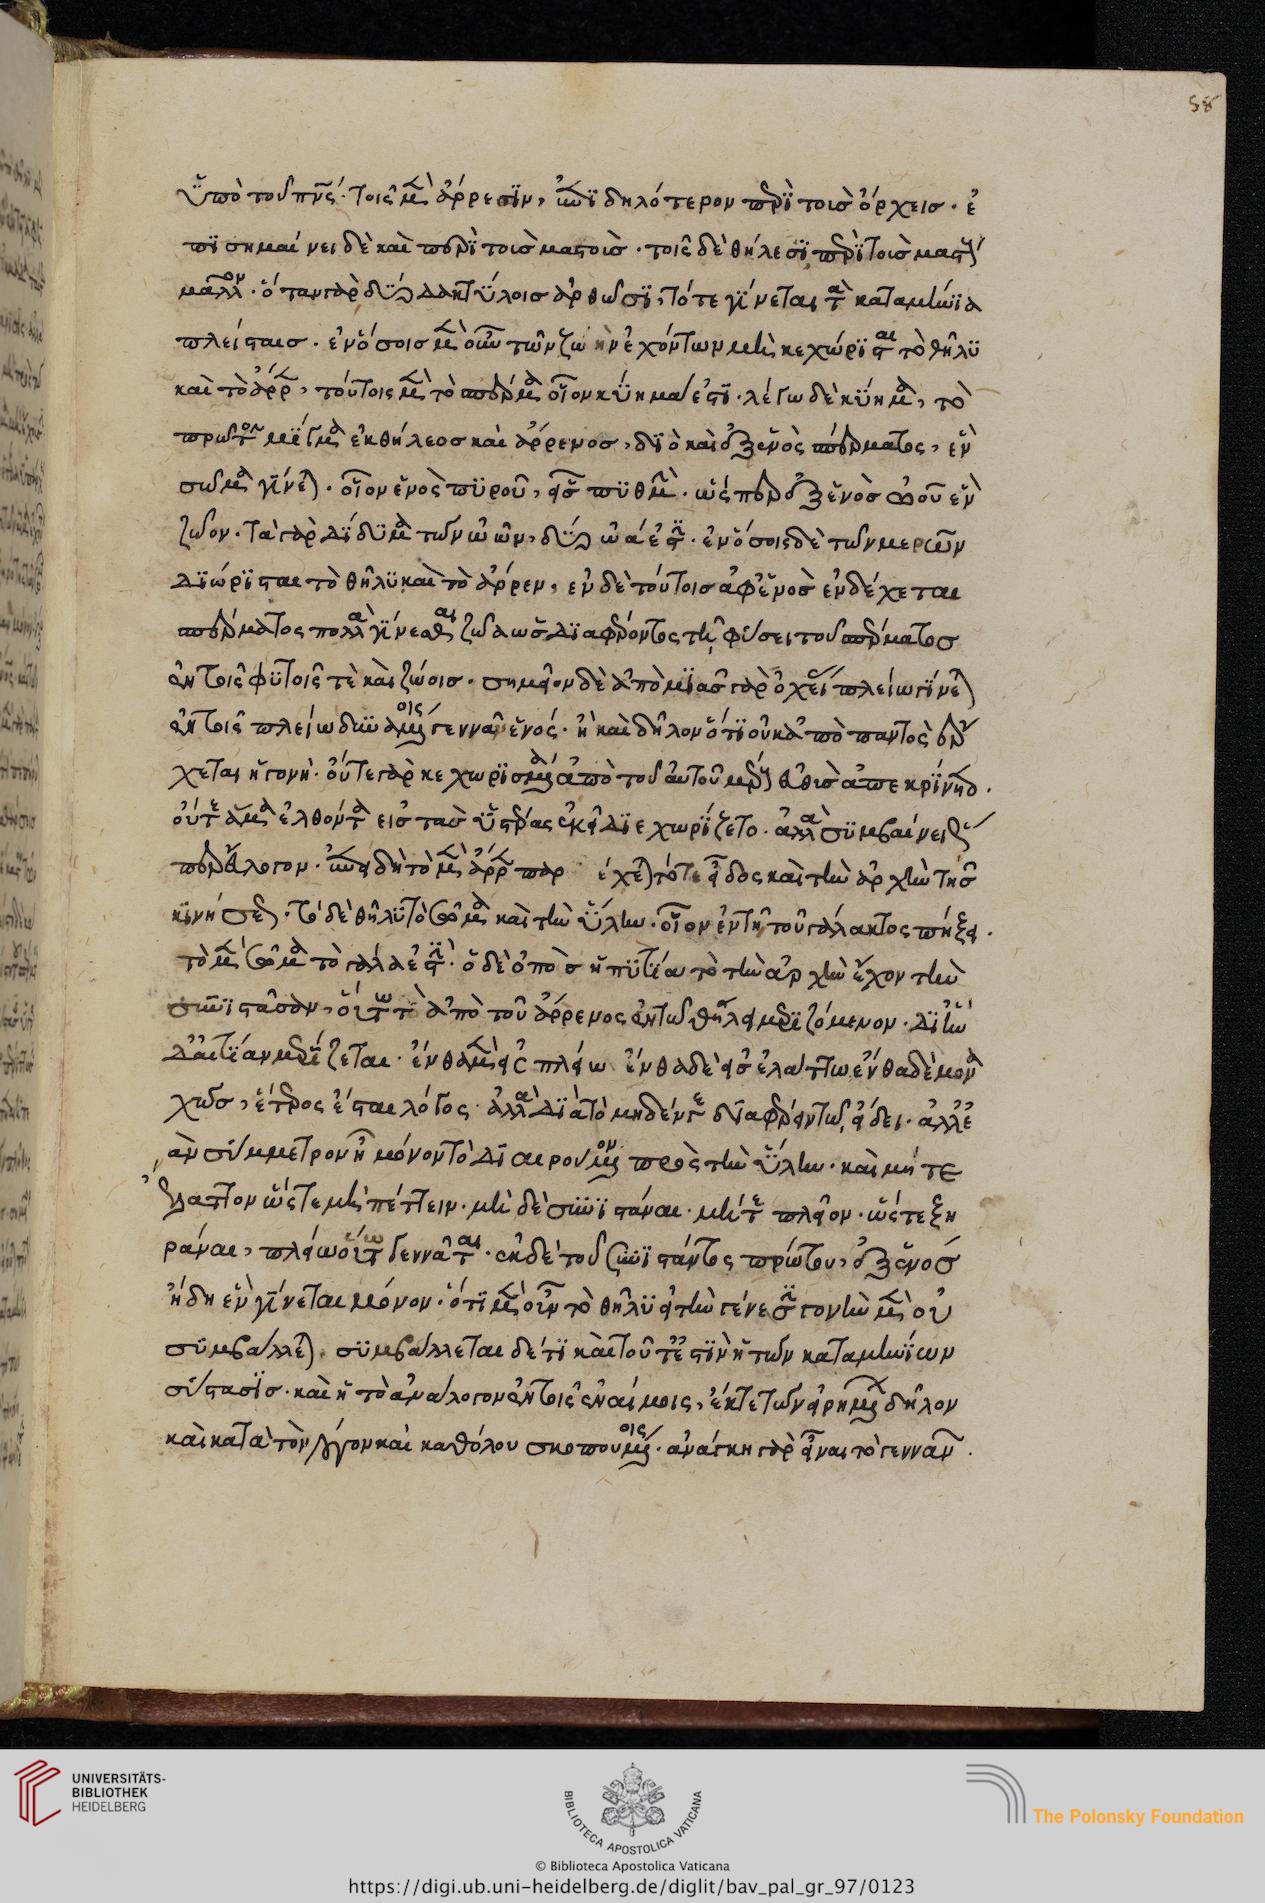 58
ὑπὸ τοῦ πν̅ς· τοῖς μὲν ἄρρεσιν, ἐπιδηλότερον περὶ τοὺς ὄρχεις· ἐ
πισημαίνει δὲ καὶ περὶ τοὺς μαστούς· τοῖς δὲ θήλεσι περὶ τοὺς μαστοὺς
μᾶλλον· ὅταν γὰρ δύο δακτύλους ἀρθῶσι, τότε γίνεται τὰ καταμήνια
πλείσταις· ἐν ὅσοις μὲν οὖν τῶν ζωὴν ἐχόντων μὴ κεχώρισται τὸ θῆλυ
καὶ τὸ ἄρρεν, τούτοις μὲν τὸ σπέρμα οἷον κύημά ἐστι· λέγω δὲ κύημα, τὸ
πρῶτον μίγμα ἐκ θήλεος καὶ ἄρρενος, διὸ καὶ ἐξ ἑνὸς σπέρματος, ἓν
σῶμα γίνεται· οἷον ἑνὸς πυροῦ, εἷς πυθμήν· ὥσπερ ἐξ ἑνὸς ὠοῦ ἓν
ζῶον· τὰ γὰρ δίδυμα τῶν ὠῶν, δύο ὠά ἐστιν· ἐν ὅσοις δὲ τῶν μερῶν
διώρισται τὸ θῆλυ καὶ τὸ ἄρρεν, ἐν δὲ τούτοις ἀφ' ἑνὸς ἐνδέχεται
σπέρματος πολλὰ γίνεσθαι ζῶα ὡς διαφέροντος τῇ φύσει τοῦ σπέρματος
ἐν τοῖς φυτοῖς τὲ καὶ ζώοις· σημεῖον δὲ ἀπὸ μιᾶς γὰρ ὀχείας πλείω γίνεται
ἐν τοῖς πλείω δυναμένοις γεννᾶν ἑνός· ᾗ καὶ δῆλον ὅτι οὐκ ἀπὸ παντὸς ἔρ
χεται ἡ γονή· οὔτε γὰρ κεχωρισμένα ἀπὸ τοῦ αὐτοῦ μέρους εὐθὺς ἀπεκρίνετο·
οὔτε ἅμα ἐλθόντα εἰς τὰς ὑστέρας ἐκεῖ διεχωρίζετο· ἀλλὰ συμβαίνει ὥς
περ εὔλογον· ἐπειδὴ τὸ μὲν ἄρρεν παρέχεται τό τε εἶδος καὶ τὴν ἀρχὴν τῆς
κινήσεως· τὸ δὲ θῆλυ τὸ σῶμα καὶ τὴν ὕλην· οἷον ἐν τῇ τοῦ γάλακτος πήξει·
τὸ μὲν σῶμα τὸ γάλα ἐστίν· ὁ δὲ ὀπὸς ἢ πυτία τὸ τὴν ἀρχὴν ἔχον τὴν
συνιστᾶσαν, οὕτω τὸ ἀπὸ τοῦ ἄρρενος ἐν τῷ θήλει μεριζόμενον· δι' ἣν
δ' αἰτίαν μερίζεται· ἔνθα μὲν εἰς πλείω ἔνθα δὲ εἰς ἐλάττω ἔνθα δὲ μονα
χῶς, ἕτερος ἔσται λόγος· ἀλλὰ διὰ τὸ μηδέν γε διαφέρειν τῷ εἴδει· ἀλλ' ἐ
ὰν σύμμετρον ᾖ μόνον τὸ διαιρούμενον πρὸς τὴν ὕλην· καὶ μήτε
ἔλαττον ὥστε μὴ πέττειν· μὴ δὲ συνιστάναι· μήτε πλεῖον· ὥστε ξη
ράναι, πλείω οὕτω γεννᾶται· ἐκ δὲ τοῦ συνιστάντος πρώτου, ἐξ ἑνός
ἤδη ἓν γίνεται μόνον· ὅτι μὲν οὖν τὸ θῆλυ εἰς τὴν γένεσιν γονὴν μὲν οὐ
συμβάλλεται. συμβάλλεται δέ τι καὶ τοῦτ' ἐστὶν ἡ τῶν καταμηνίων
σύστασις· καὶ ἢ τὸ ἀνάλογον ἐν τοῖς ἐναίμοις, ἔκ τε τῶν εἰρημένων δῆλον
καὶ κατὰ τὸν λόγον καὶ καθόλου σκοπουμένοις· ἀνάγκη γὰρ εἶναι τὸ γεννᾶν·
UNIVERSITÄTS-
BIBLIOTHEK
HEIDELBERG
BIBLIOTECA APOSTOLICA VATICANA
The Polonsky Foundation
© Biblioteca Apostolica Vaticana
https://digi.ub.uni-heidelberg.de/diglit/bav_pal_gr_97/0123